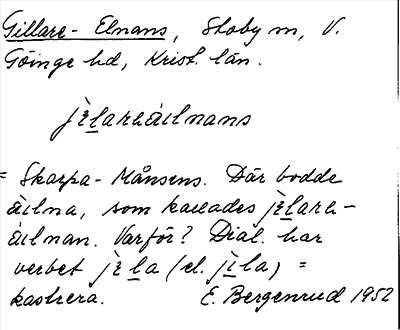 Gillare- Elnans, Stoby sn, V.
Göinge hd, Krist. län.
jèlarеàılnans
= Skarpa-Månsens. Där bodde
àılna, som kallades jèlarе-
àılnan. Varför? Dial. har
verbet jèla (el. jìla) =
kastrera. E. Bergenrud 1952